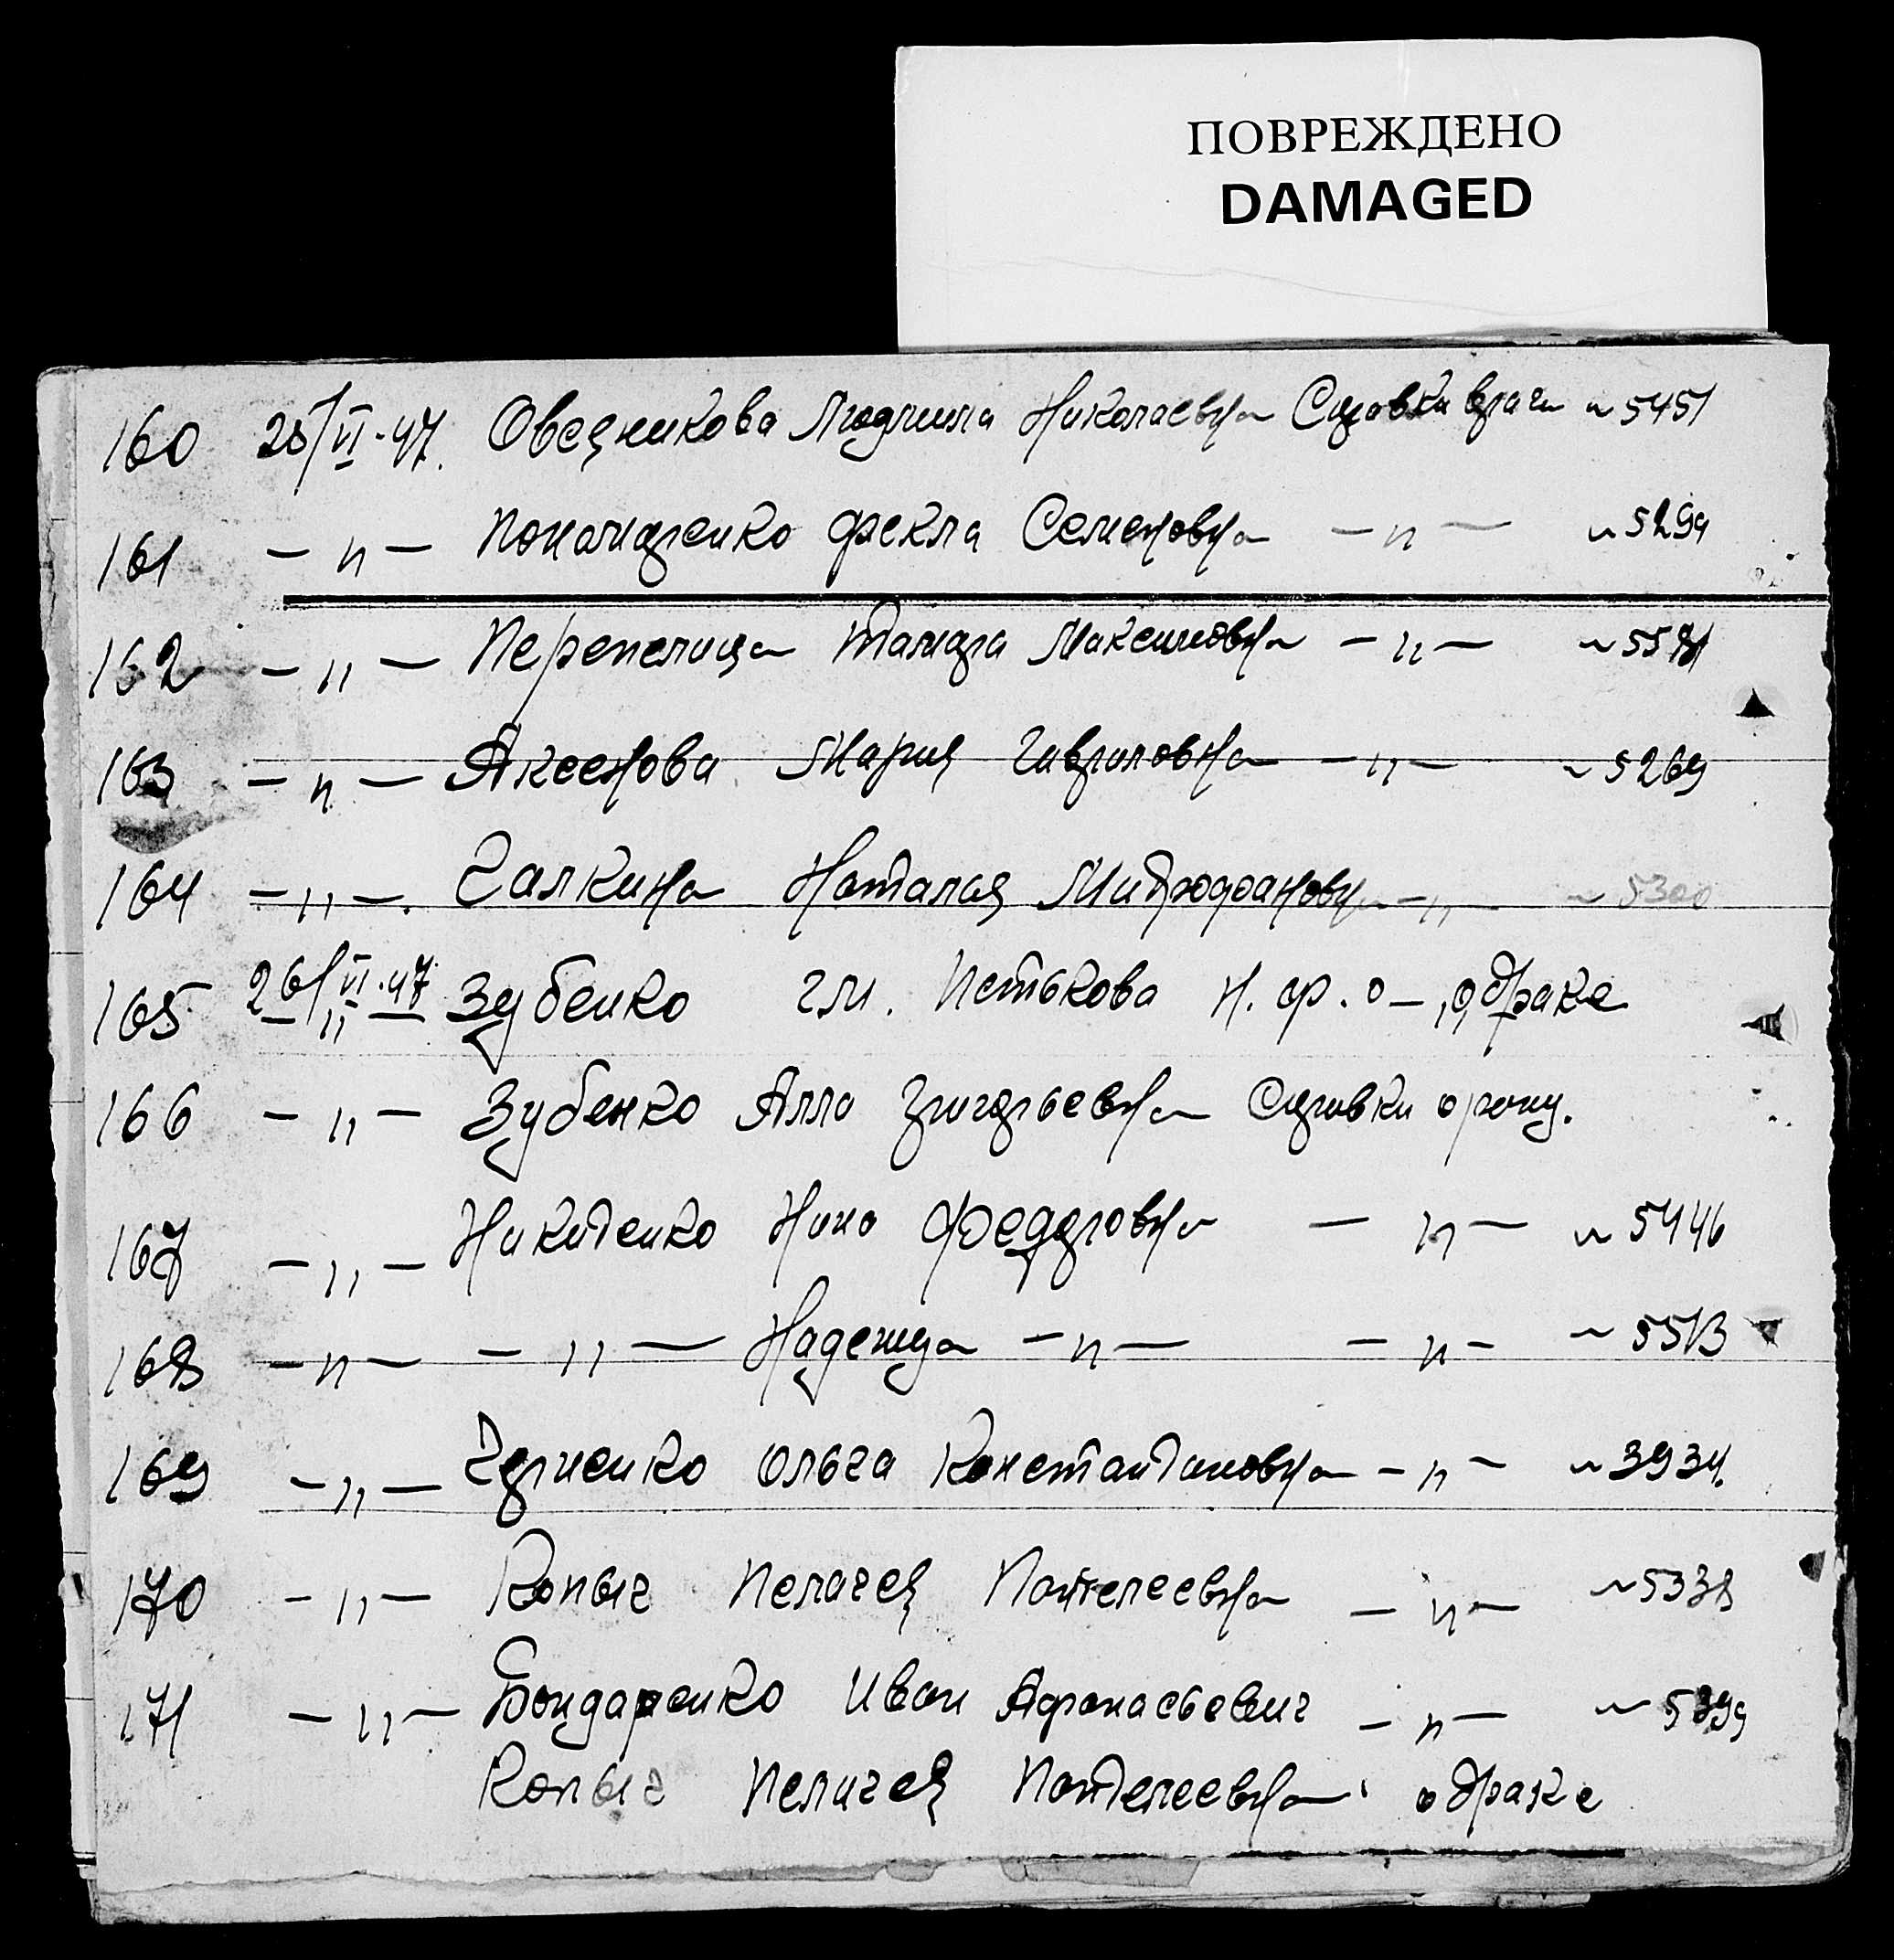 ПОВРЕЖДЕНО
DAMAGED
160 25/VI-47. Овсянникова Людмила Николаевна Справка врача ~ 5451
161 — " — Пономаренко Фекла Семеновна — " — ~ 5299
162 — " — Перепелица Тамара Максимовна — " — ~ 5571
163 — " — Аксенова Мария Гавриловна — " — ~ 5269
164 — " — Галкина Наталия Митрофановна — " — ~ 5300
165 26/VI-47 — " — Зубенко гм. Петькова Н. ф. о — " о браке
166 — " — Зубенко Алла Григорьевна Справки о рожд.
167 — " — Никитенко Нина Федоровна — " — ~ 5446
168 — " — — " — Надежда — " — — " — ~ 5513
169 — " — Ольга Константиновна — " — ~ 3934.
170 — " — Копыг Пелагея Пантелеевна — " — ~ 5338
171 — " — Бондаренко Иван Афанасьевич — " — ~ 5399
Копыг Пелагея Пантелеевна о браке